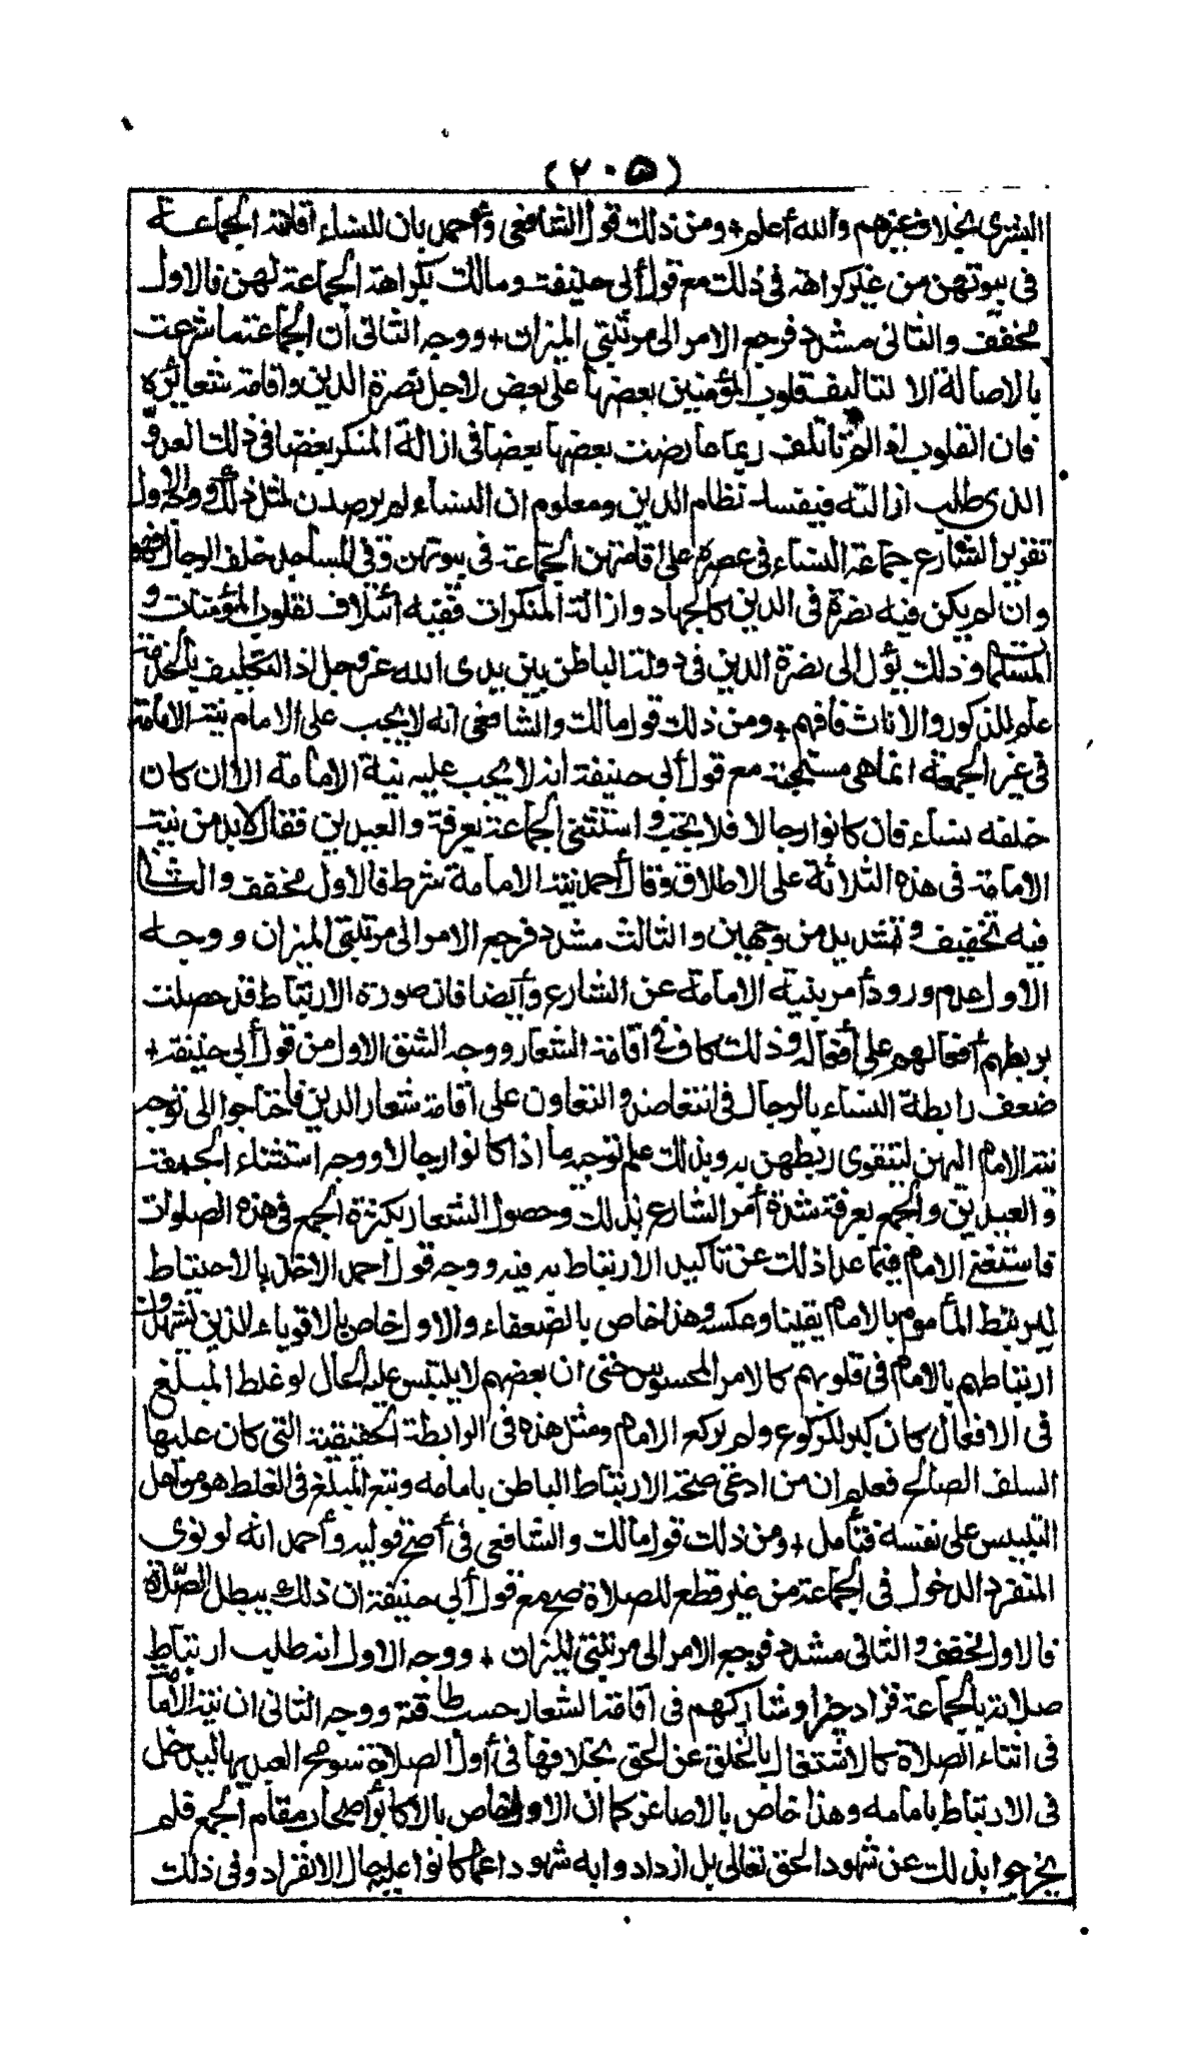 (٢٠٥)
البشرى بخلاف غيرهم والله أعلم + ومن ذلك قول الشافعى وأحمد بان للنساء اقامة الجماعة
فى بيوتهن من غير كراهة فى ذلك مع قول أبى حنيفة ومالك بكراهة الجماعة لهن فالاول
مخفف والثانى مشدد فرجع الامر الى مرتبتي الميزان + ووجه الثانى أن الجماعة ما شرعت
بالاصالة الا لتاليف قلوب المؤمنين بعضها على بعض لاجل نصرة الدين واقامة شعائره
فان القلوب اذا لم تأتلف ربما عارضت بعضها بعضا فى ازالة المنكر بغضا فى ذلك العدو
الذى طلب ازالته فيفسد نظام الدين ومعلوم ان النساء لم يرصدن لمثل ذلك ووجه الاول
تقرير الشارع جماعة النساء فى عصره على اقامتهن الجماعة فى بيوتهن وفى المساجد خلف الرجال فهو
وان لم يكن فيه نصرة فى الدين كالجهاد وازالة المنكرات ففيه ائتلاف لقلوب المؤمنات و
المسلمات وذلك يؤل الى نصرة الدين فى دولة الباطن بين يدى الله عز وجل اذ التكليف بالخدمة
عام للذكور والاناث فافهم + ومن ذلك قول مالك والشافعى انه لا يجب على الامام نية الامامة
فى غير الجمعة انما هى مستحبة مع قول أبى حنيفة انه لا يجب عليه نية الامامة الا ان كان
خلفه نساء فان كانوا رجالا فلا يجب واستثنى الجماعة بعرفة والعيدين فقال لابد من نية
الامامة فى هذه الثلاثة على الاطلاق وقال أحمد نية الامامة شرط فالاول مخفف والثانى
فيه تخفيف وتشديد من وجهين والثالث مشدد فرجع الامر الى مرتبتى الميزان ووجه
الاول عدم ورود أمر بنية الامامة عن الشارع وأيضا فان صورة الارتباط قد حصلت
بربطهم أفعالهم على أفعاله وذلك كاف فى اقامة الشعار ووجه الشق الاول من قول أبى حنيفة +
ضعف رابطة النساء بالرجال فى التعاون على اقامة شعار الدين فاحتاجوا الى توجه
نية الامام اليهن ليتقوى ربطهن به وبذلك علم توجيه ما اذا كانوا رجالا ووجه استثناء الجمعة
والعيدين والجمع بعرفة شدة أمر الشارع بذلك وحصول الشعار بكثرة الجمع فى هذه الصلوات
فاستغنى الامام فيما عدا ذلك عن تاكيد الارتباط به فيه ووجه قول أحمد الاخذ بالاحتياط
ليرتبط المأموم بالامام يقينا وعكسه وهذا خاص بالضعفاء والاول خاص بالاقوياء الذين يشهدون
ارتباطهم بالامام فى قلوبهم كالامر المحسوس حتى ان بعضهم لا يلتبس عليه الحال لو غلط المبلغ
فى الافعال كان كبر للركوع ولم يركع الامام ومثل هذه فى الرابطة الحقيقية التى كان عليها
السلف الصالح فعلم ان من ادعى صحة الارتباط الباطن بامامه وتبع المبلغ فى الغلط هو من أهل
التلبيس على نفسه فتأمل + ومن ذلك قول مالك والشافعى فى أصح قوليه وأحمد انه لو نوى
المنفرد الدخول فى الجماعة من غير قطع للصلاة صح مع قول أبى حنيفة ان ذلك يبطل الصلاة
فالاول مخفف والثانى مشدد فرجع الامر الى مرتبتى الميزان + ووجه الاول انه طلب ارتباط
صلاته بالجماعة فزاد خيرا وشاركهم فى اقامة الشعار حسب طاقته ووجه الثانى ان نية الامامة
فى اثناء الصلاة كالاشتغال بالخلق عن الحق بخلافها فى أول الصلاة سومح العبد بها ليدخل
فى الارتباط بامامه وهذا خاص بالاصاغر كما ان الاول خاص بالاكابر أصحاب مقام الجمع فلم
يخرجوا بذلك عن شهود الحق تعالى بل ازدادوا به شهودا عما كانوا عليه حال الانفراد وفى ذلك